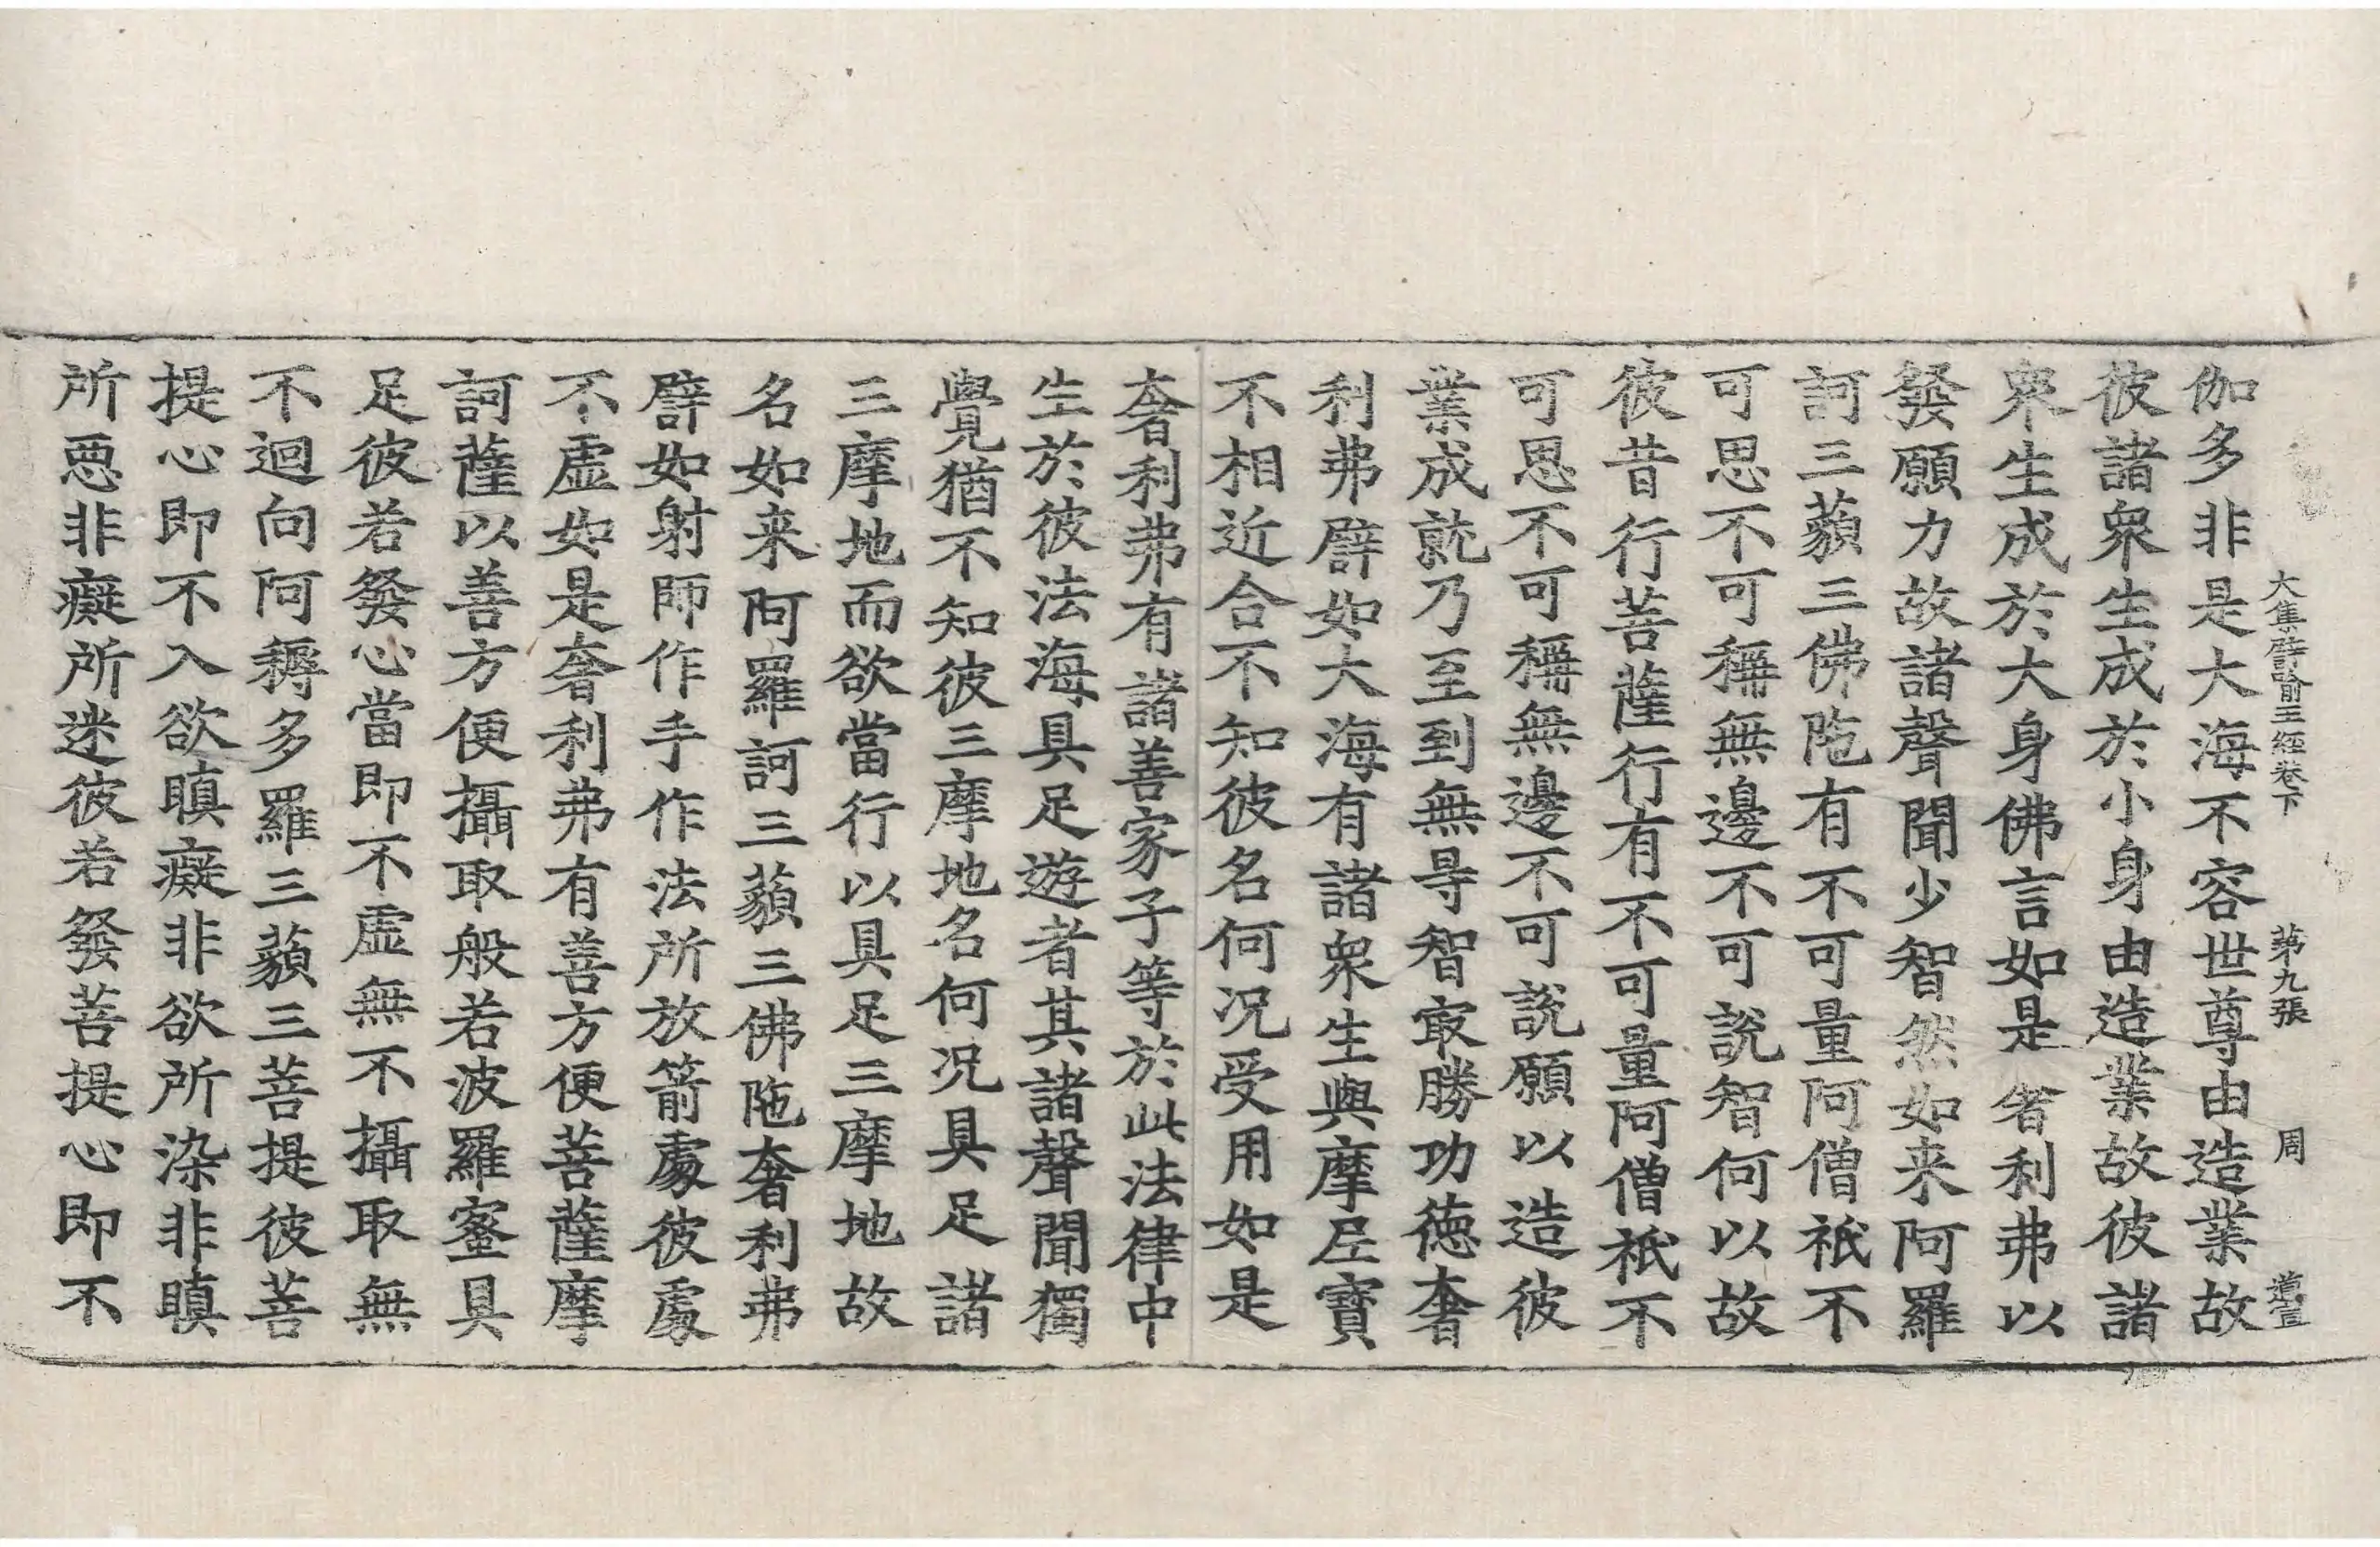 大集譬喻王經卷下　第九張　周
伽多非是大海不容世尊由造業故
彼諸衆生成於小身由造業故彼諸
衆生成於大身佛言如是奢利弗以
發願力故諸聲聞少智然如来阿羅
訶三藐三佛陁有不可量阿僧祇不
可思不可稱無邊不可說智何以故
彼昔行菩薩行有不可量阿僧祇不
可思不可稱無邊不可說願以造彼
業成就乃至到無㝵智㝡勝功德奢
利弗譬如大海有諸衆生與摩尼寶
不相近合不知彼名何况受用如是
奢利弗有諸善家子等於此法律中
生於彼法海具足遊者其諸聲聞獨
覺猶不知彼三摩地名何况具足諸
三摩地而欲當行以具足三摩地故
名如来阿羅訶三藐三佛陁奢利弗
譬如射師作手作法所放箭處彼處
不虛如是奢利弗有善方便菩薩摩
訶薩以善方便攝取般若波羅蜜具
足彼若發心當即不虛無不攝取無
不迴向阿耨多羅三藐三菩提彼菩
提心即不入欲瞋癡非欲所染非瞋
所惡非癡所迷彼若發菩提心即不